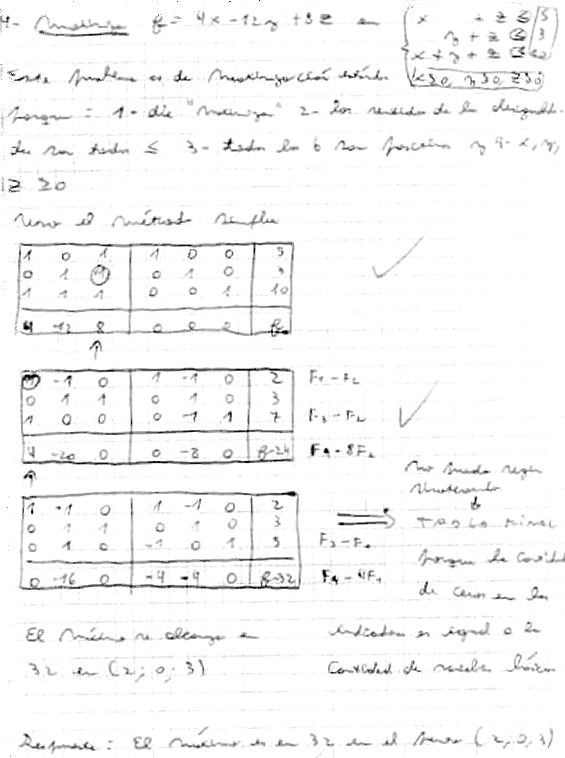 4- Maximizar f = 4x - 12y + 8z en { x + z ≤ 5
y + z ≤ 3
x + y + z ≤ 10
x≥0, y≥0, z≥0
Este problema es de maximización estándar
porque = 1- dice "Maximiza" 2- los sentidos de la desigualda-
des son todos ≤ 3- todos los b son positivos y 4- x, y,
z ≥ 0
Uso el método simplex
1 0 1 1 0 0 5
0 1 1 0 1 0 3
1 1 1 0 0 1 10
4 -12 8 0 0 0 f
↑
1 -1 0 1 -1 0 2 F1 - F2
0 1 1 0 1 0 3
1 0 0 0 -1 1 7 F3 - F2
4 -20 0 0 -8 0 f-24 F4 - 8F2
↑
no puedo seguir
iterando
1 -1 0 1 -1 0 2 ⇒ TABLA FINAL
0 1 1 0 1 0 3
0 1 0 -1 0 1 5 F3 - F1
porque la cantidad
0 -16 0 -4 -4 0 f-32 F4 - 4F1
de ceros en los
El máximo se alcanza en indicadores es igual a la
32 en (2; 0; 3) cantidad de variables básicas
Respuesta: El máximo es en 32 en el punto (2, 0, 3)